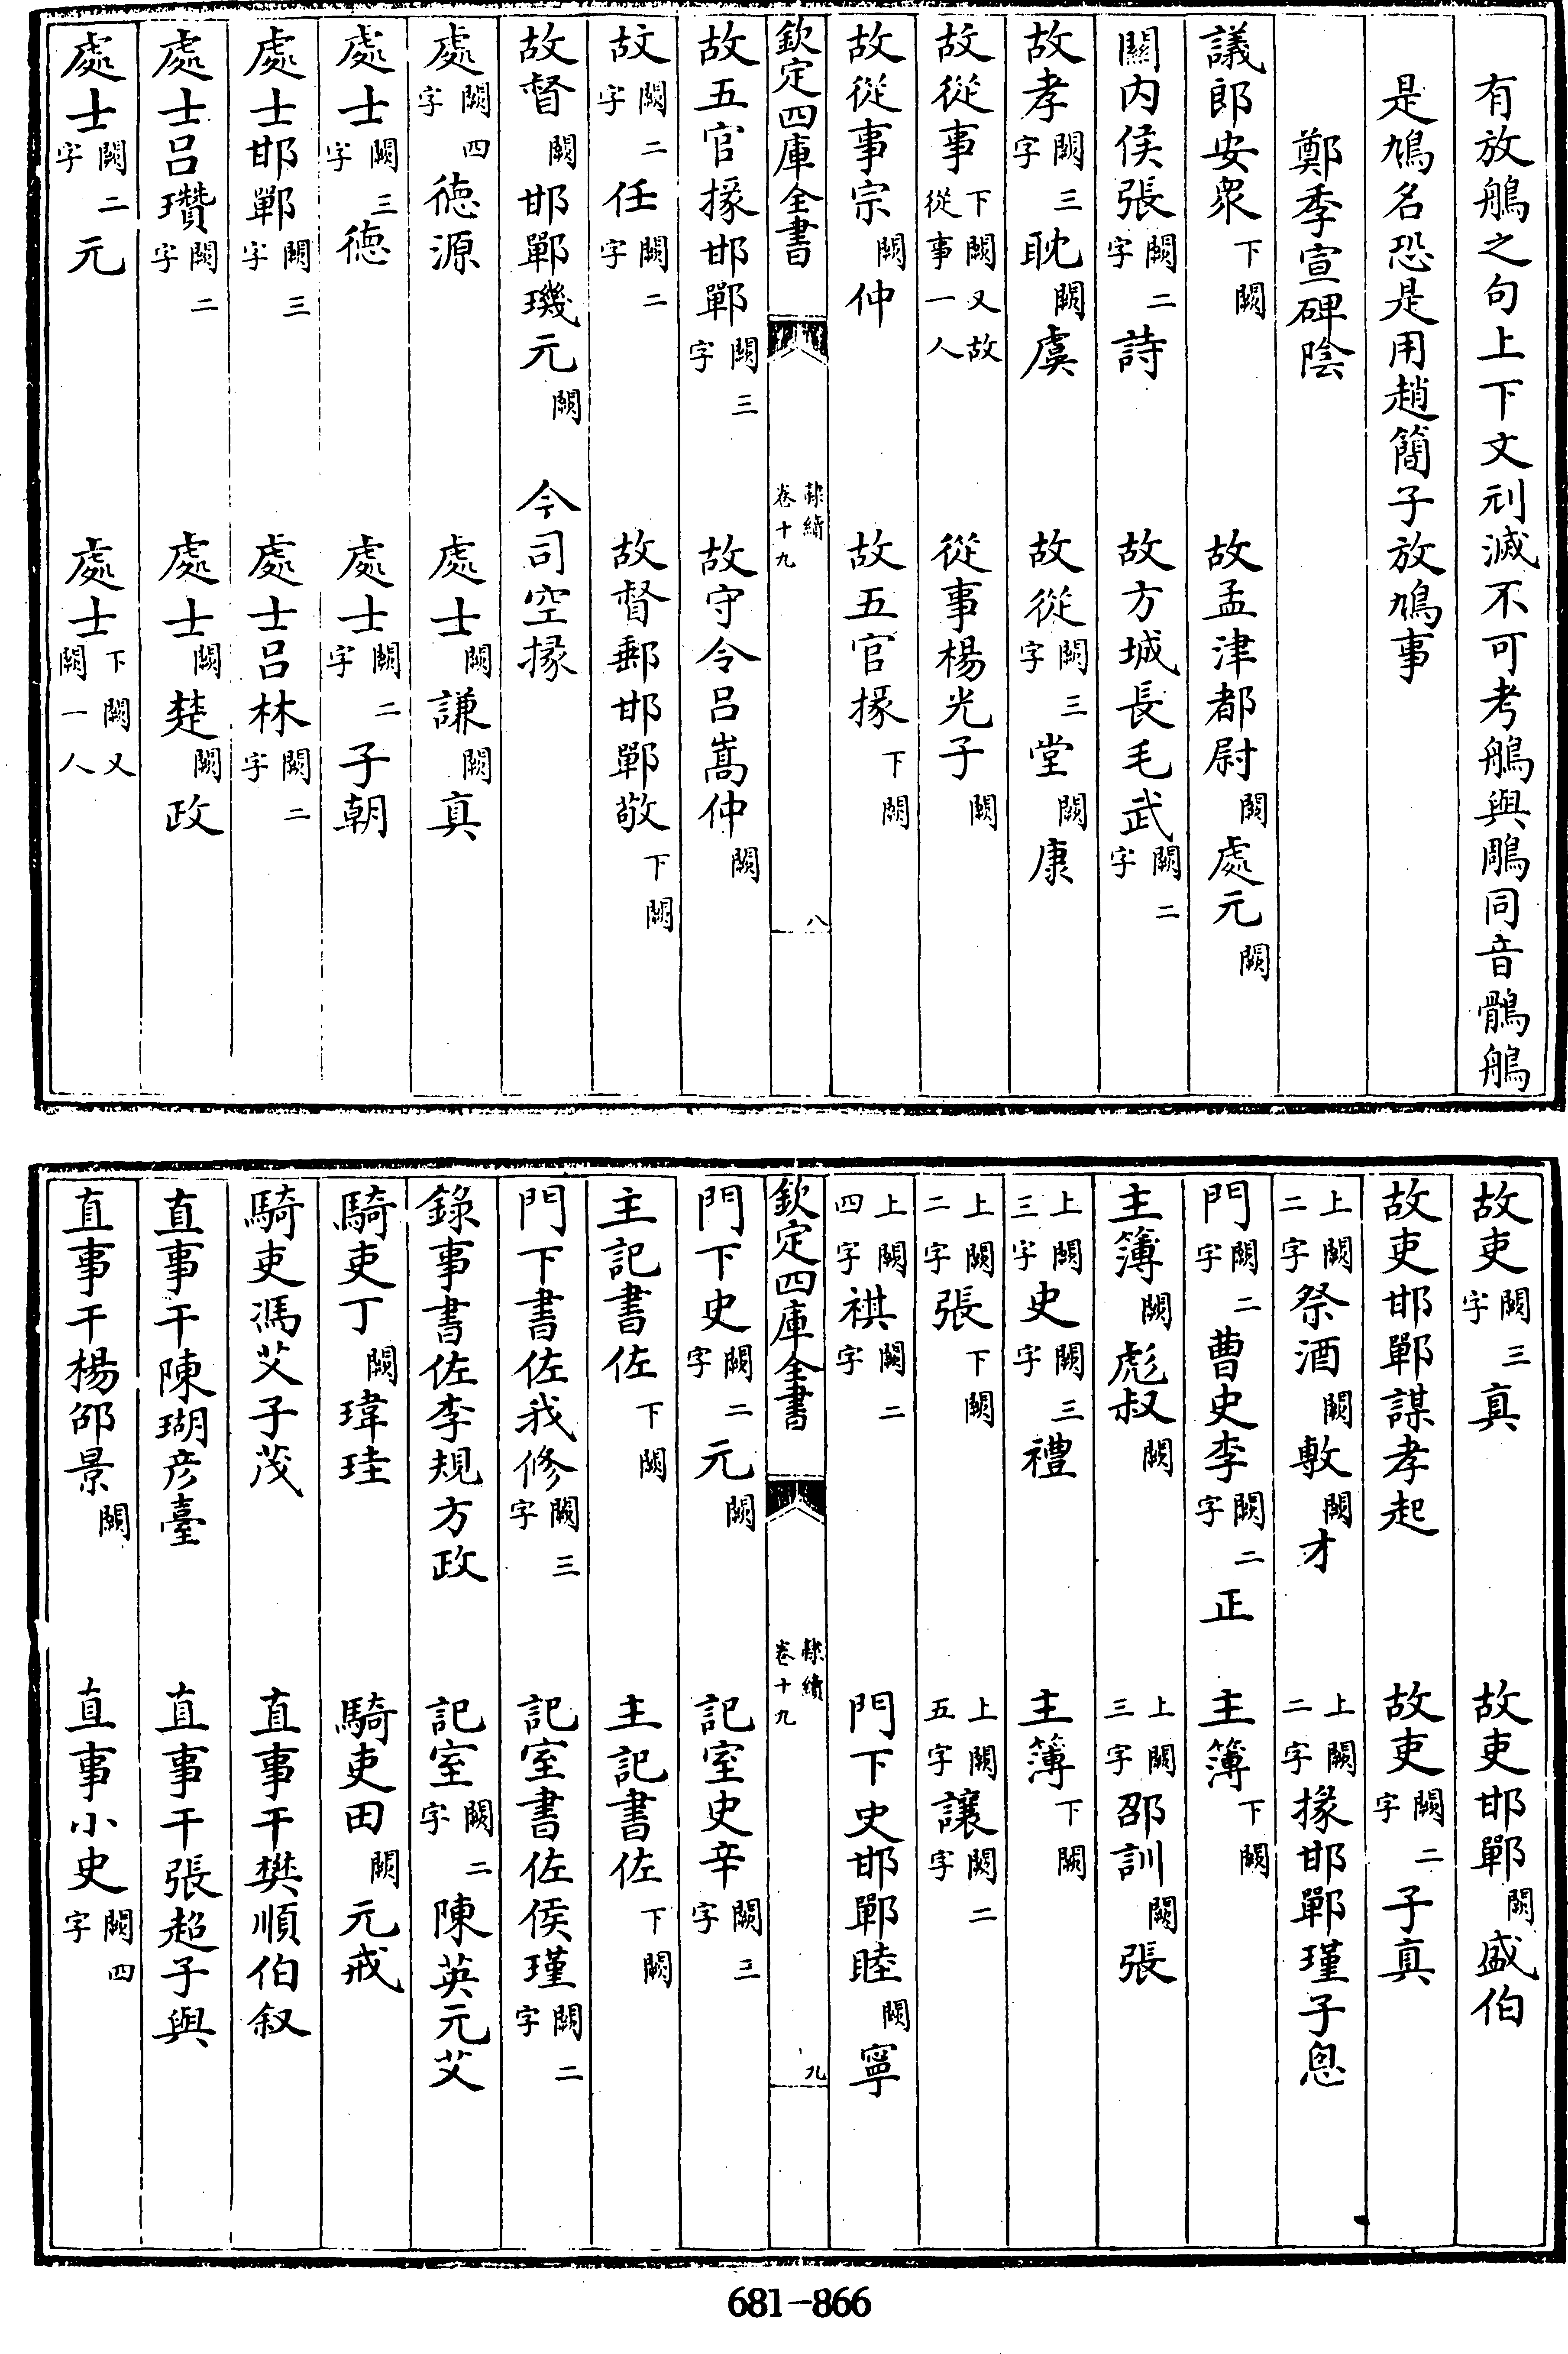 有放鵃之句上下文刓滅不可考鵃與鵰同音鶻鵃
是鳩名恐是用趙簡子放鳩事
鄭季宣碑陰
議郎安衆下闕 故孟津都尉闕處元闕
關内侯張闕二字詩 故方城長毛武闕二字
故孝闕三字耽闕虞 故從闕三字堂闕康
故從事下闕又故從事一人 從事楊光子闕
故從事宗闕仲 故五官掾下闕
欽定四庫全書 隸續卷十九 八
故五官掾邯鄲闕三字 故守令呂嵩仲闕
故闕二字任闕二字 故督郵邯鄲敬下闕
故督闕邯鄲璣元闕 今司空掾
處闕四字德源 處士闕謙闕真
處士闕三字德 處士闕二字子朝
處士邯鄲闕三字 處士呂林闕二字
處士呂瓚闕二字 處士闕楚闕政
處士闕二字元 處士下闕又闕一人
故吏闕三字真 故吏邯鄲闕盛伯
故吏邯鄲謀孝起 故吏闕二字子真
上闕二字祭酒闕敷闕才 上闕二字掾邯鄲瑾子恩
門闕二字曹史李闕二字正 主簿下闕
主簿闕彪叔闕 上闕三字邵訓闕張
上闕三字史闕三字禮 主簿下闕
上闕二字張下闕 上闕五字讓闕二字
上闕四字祺闕二字 門下史邯鄲睦闕寧
欽定四庫全書 隸續卷十九 九
門下史闕二字元闕 記室史辛闕三字
主記書佐下闕 主記書佐下闕
門下書佐我修闕三字 記室書佐侯瑾闕二字
錄事書佐李規方政 記室闕二字陳英元艾
騎吏丁闕瑋珪 騎吏田闕元戒
騎吏馮艾子茂 直事干樊順伯叙
直事干陳瑚彦臺 直事干張超子與
直事干楊邵景闕 直事小史闕四字
681-866